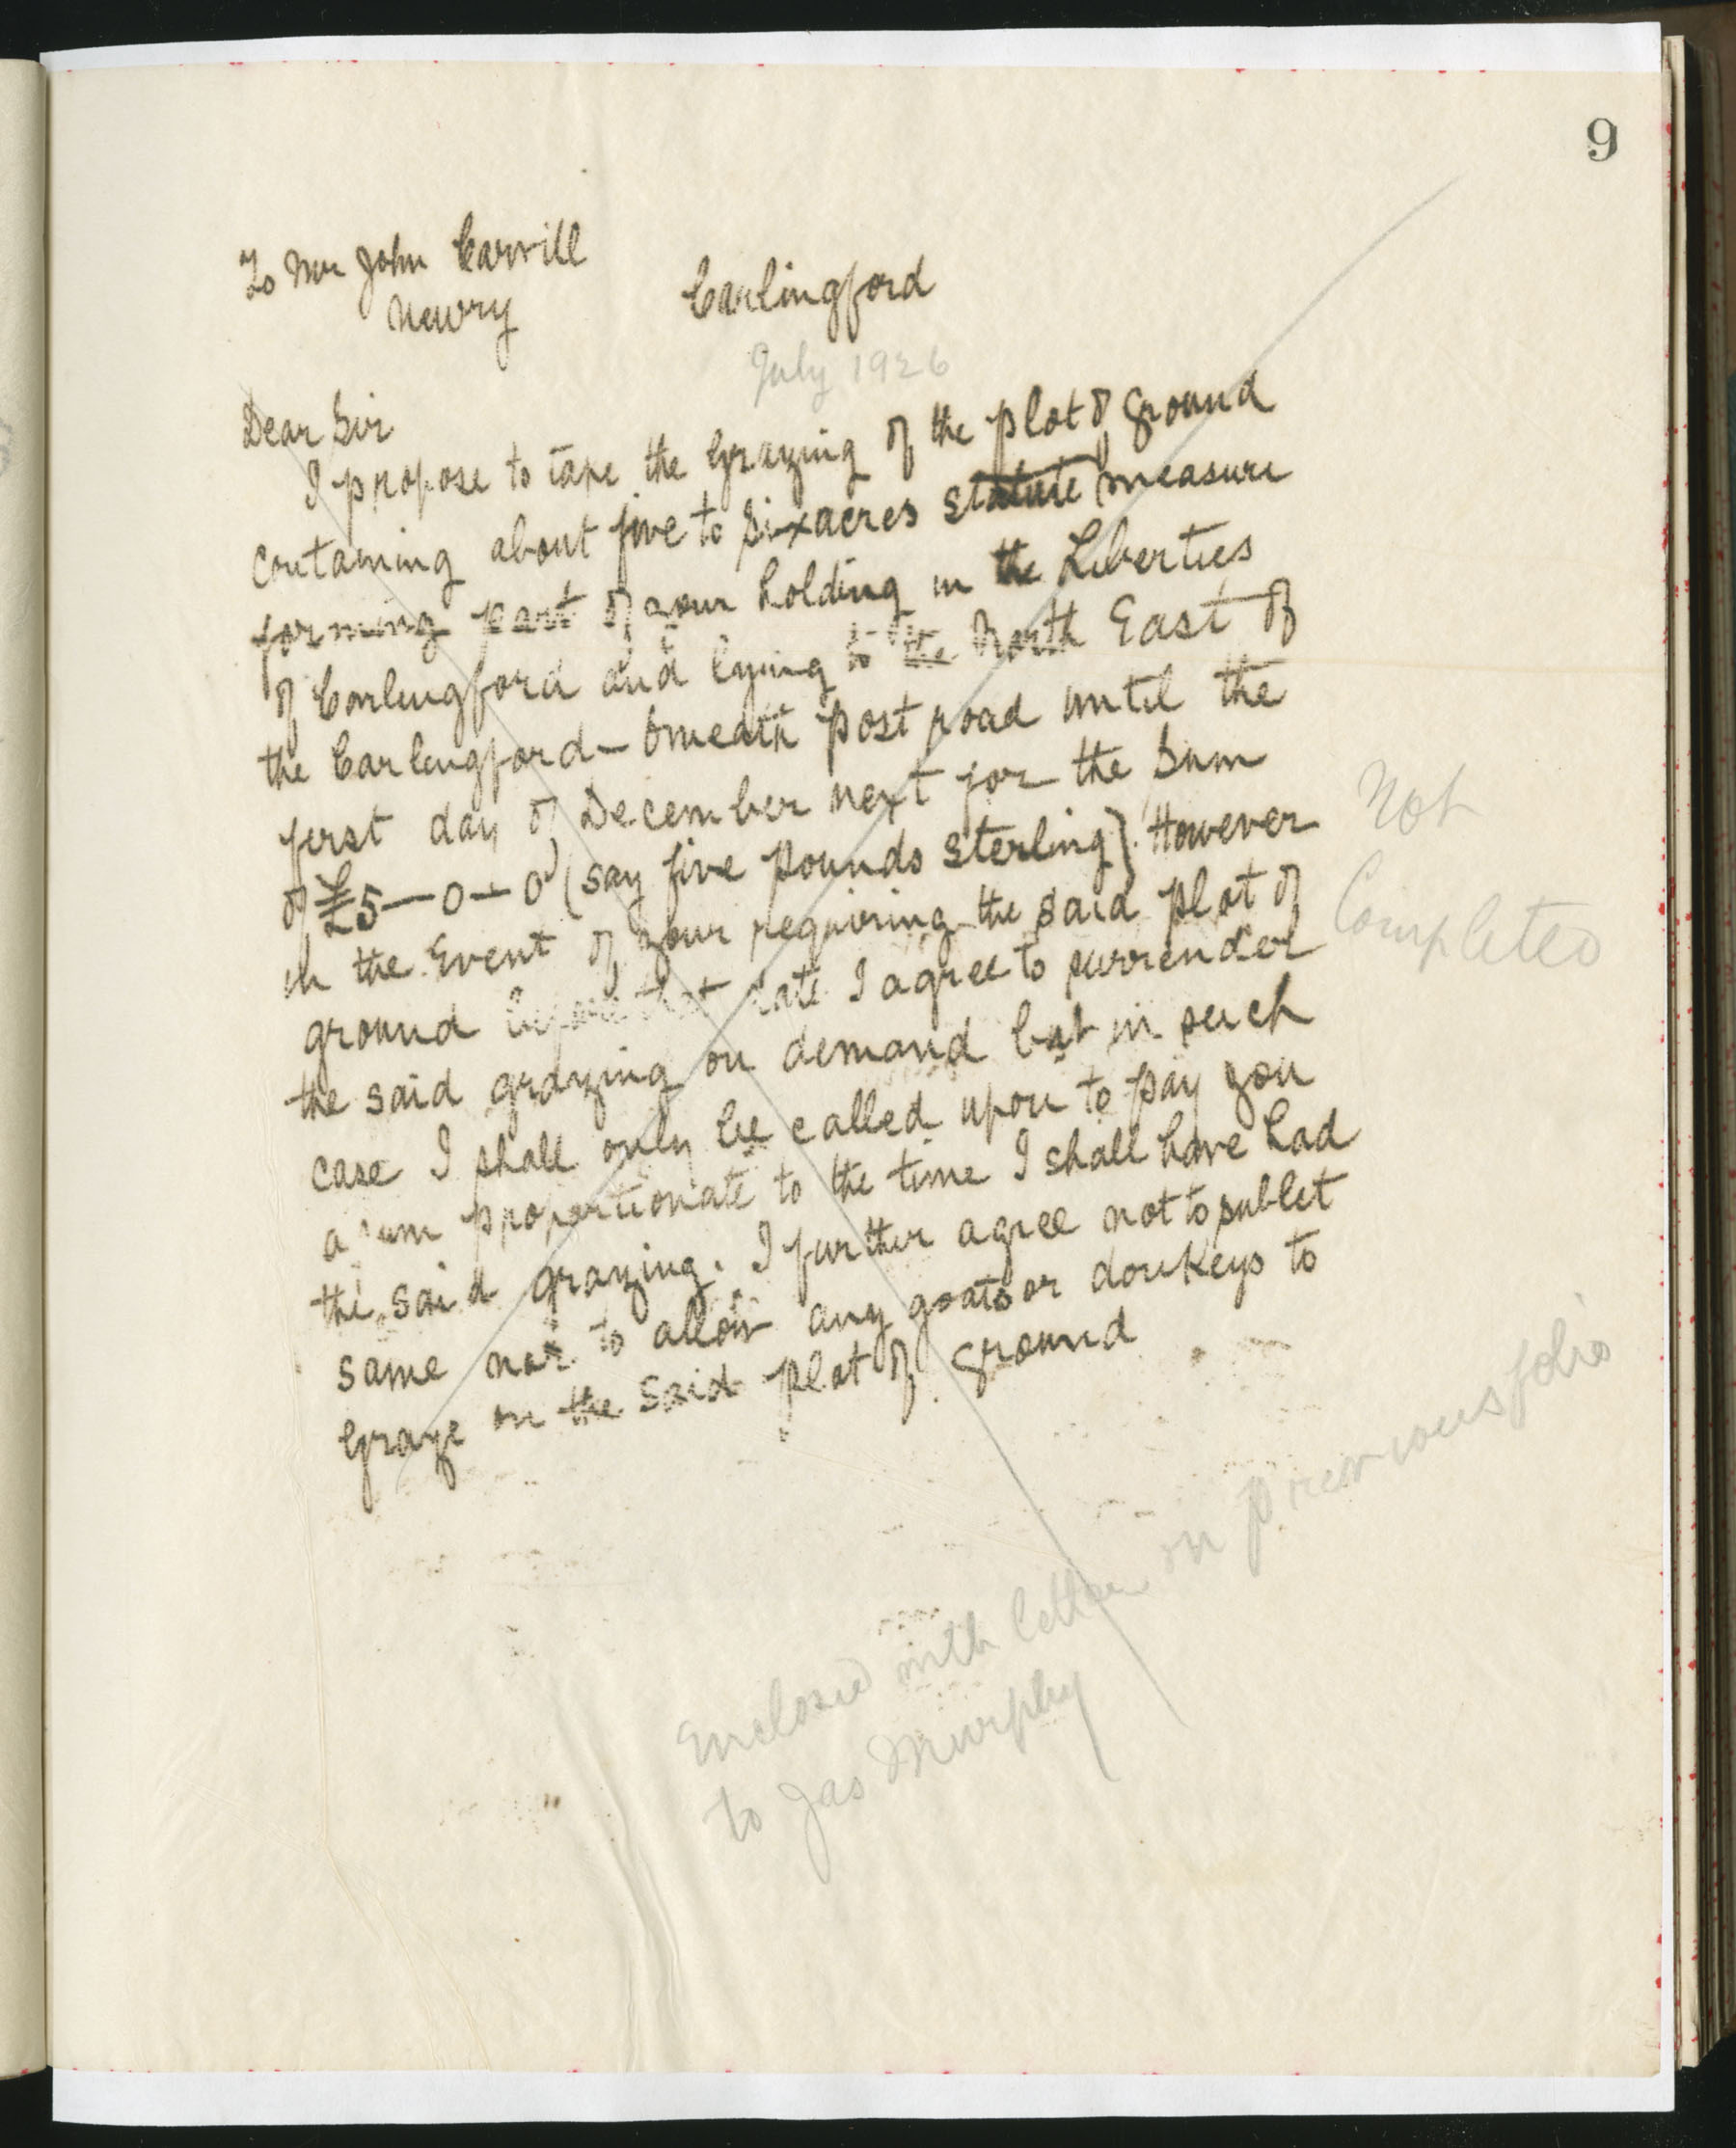 9
To Mr John Carvill
Newry
Carlingford
July 1926
Dear Sir
I propose to take the Grazing of the plot of ground
containing about five to six acres statute measure
forming part of your holding in the Liberties
of Carlingford and lying to the North East of
the Carlingford - Omeath post road until the
first day of December next for the Sum
of £5-0-0 (say five pounds Sterling). However
in the Event of your requiring the said plot of
ground before that date I agree to surrender
the said grazing on demand but in such
case I shall only be called upon to pay you
a sum proportionate to the time I shall have had
the said grazing. I further agree not to sublet
same nor to allow any goats or donkeys to
Graze on the said plot of ground
Not
Completed
Enclosed with letter on previous folio
to Jas Murphy